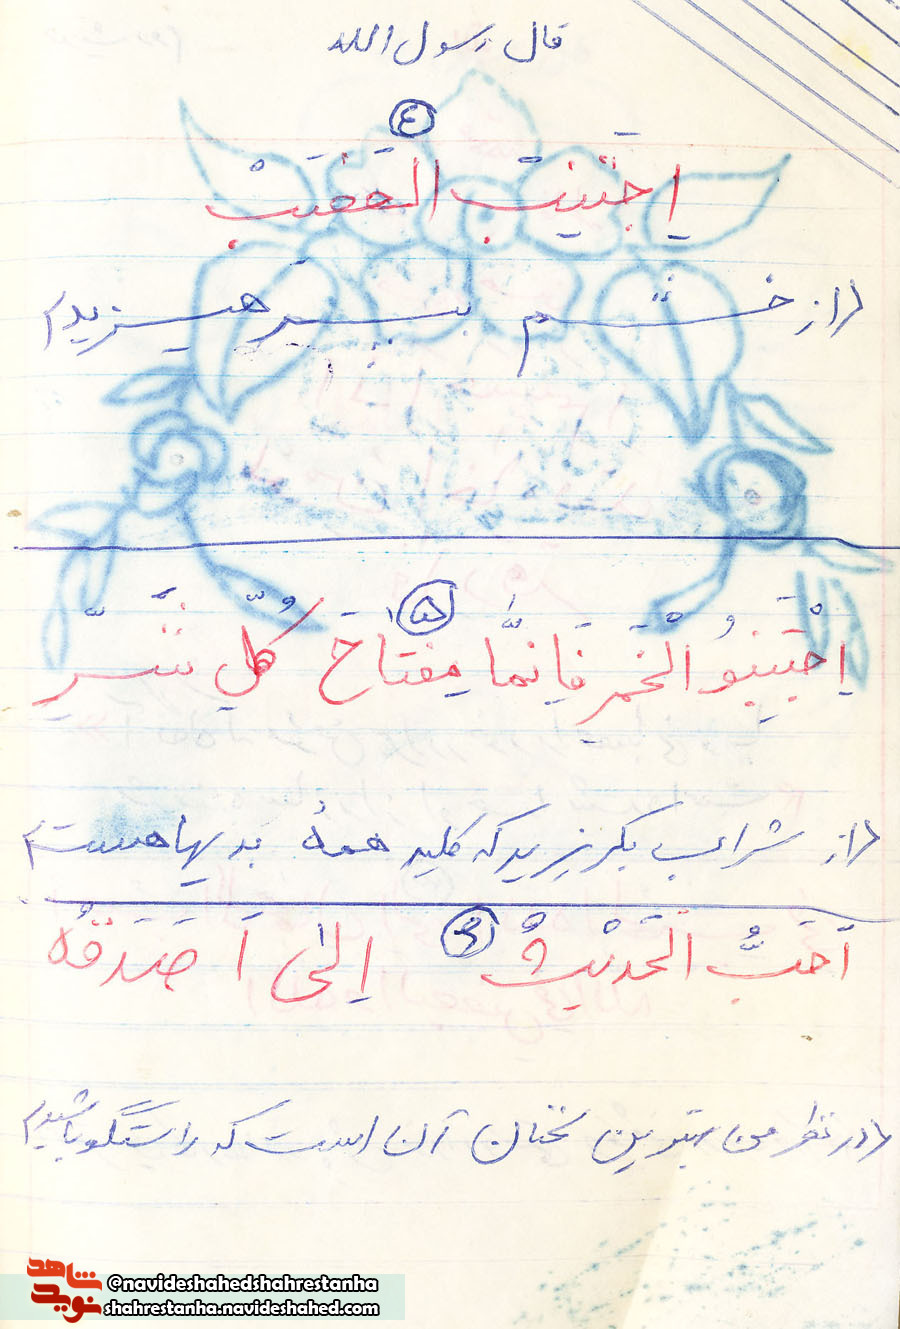 قال رسول الله
٤
اِجتَنِبْ الغَضَبْ
(از خشم بپرهیزید)
۵
اِجْتَنِبُو الْخَمْرِ فَاِنَّمٰا مِفتاحَ کُلِّ شَرِّ
(از شراب بگریزید که کلید همهٔ بدیها هست)
۶
اَحَبُّ الْحَدَیْثُ اِلیٰ اَصَدَقَهُ
(در نظر من بهترین سخنان آن است که راستگو باشید)
شاهد
نوید
@navideshahedshahrestanha
shahrestanha.navideshahed.com